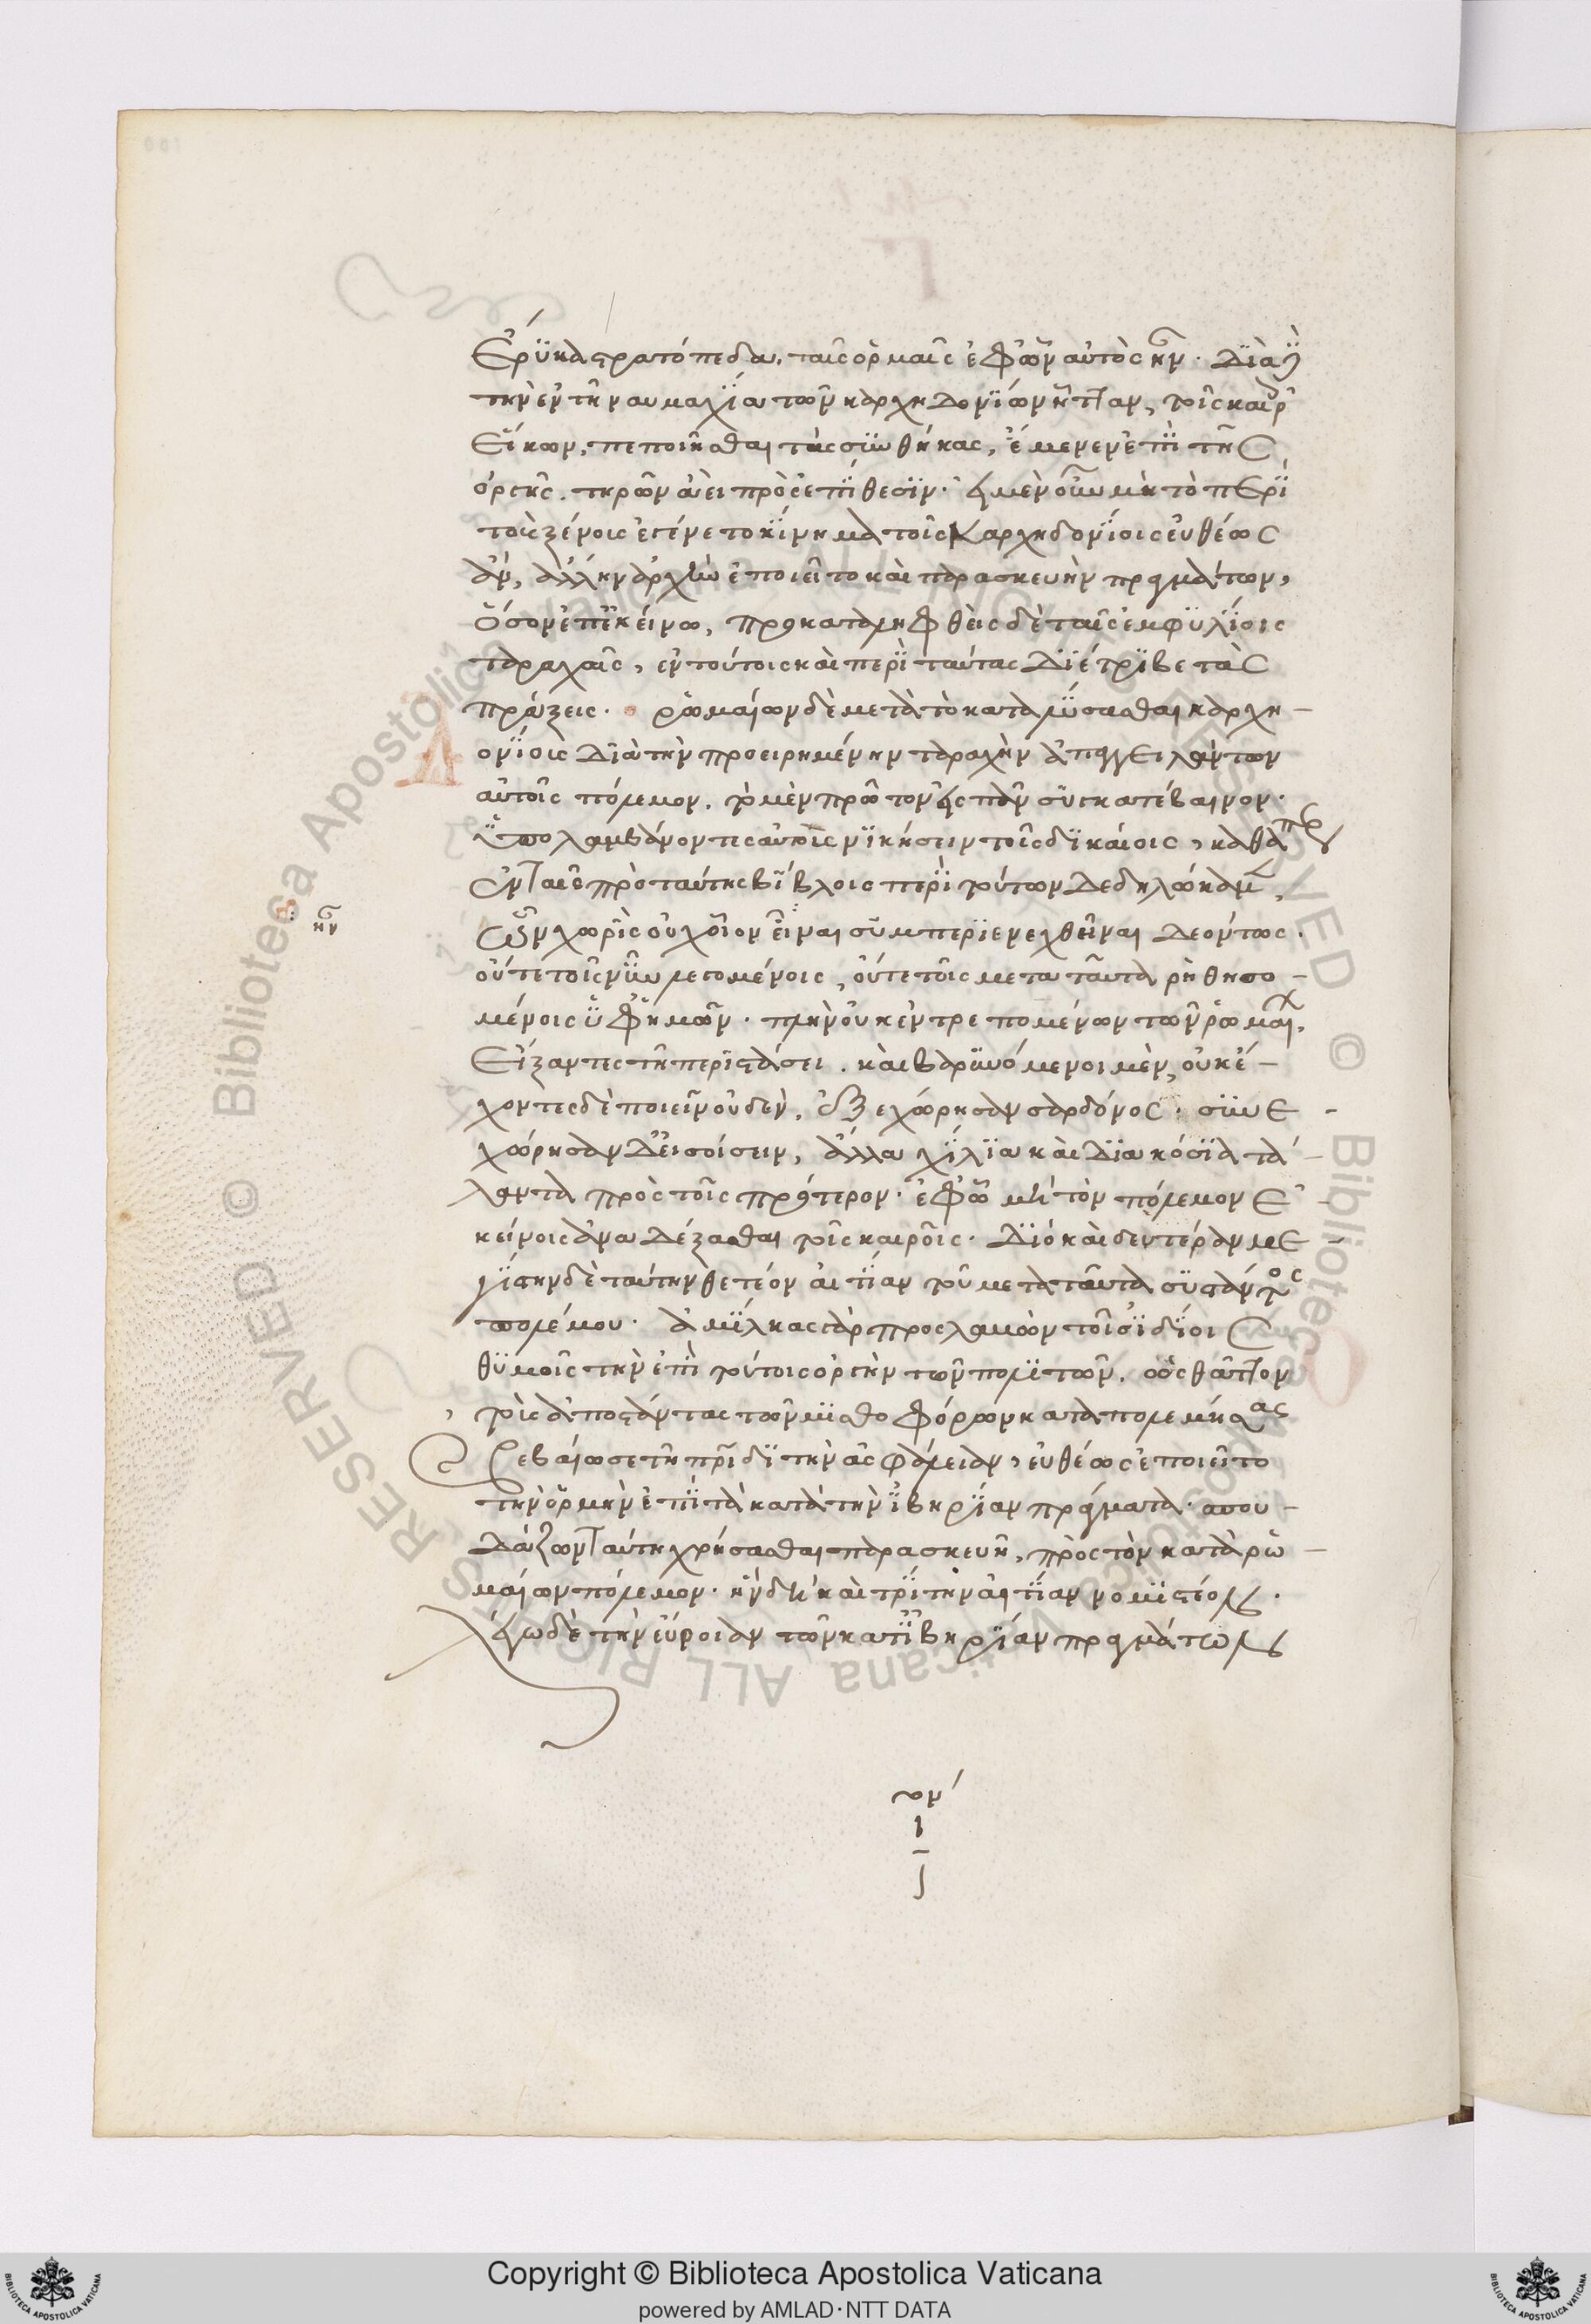 Ἔρυκα στρατόπεδα, ταῖς ὁρμαῖς ἐφ' ὧν αὐτὸς ἦν. διὰ δὲ
τὴν ἐν τῇ ναυμαχίᾳ τῶν καρχηδονίων ἧτταν, τοῖς καιροῖς
εἴκων, πεποιῆσθαι τὰς συνθήκας, ἔμενεν ἐπὶ τῆς
ὀργῆς. τηρῶν ἀεὶ πρὸς ἐπίθεσιν. εἰ μὲν οὖν μὴ τὸ περὶ
τοὺς ξένους ἐγένετο κίνημα τοῖς Καρχηδονίοις εὐθέως
ἂν, ἄλλην ἀρχὴν ἐποιεῖτο καὶ παρασκευὴν πραγμάτων,
ὅσον ἐπ' ἐκείνῳ, προκαταληφθεὶς δὲ ταῖς ἐμφυλίοις
ταραχαῖς, ἐν τούτοις καὶ περὶ ταύτας διέτριβε τὰς
πράξεις. ῥωμαίων δὲ μετὰ τὸ καταλύσασθαι καρχη-
ονίοις διὰ τὴν προειρημένην ταραχὴν ἀπαγγειλάντων
αὐτοῖς πόλεμον. τὸ μὲν πρῶτον εἰς πᾶν συγκατέβαινον.
ὑπολαμβάνοντες αὐτοὺς νικήσειν τοῖς δικαίοις, καθάπερ
ἐν ταῖς πρὸ ταύτης βίβλοις περὶ τούτων δεδηλώκαμεν,
ὧν χωρὶς οὐχ οἷον εἶναι συμπεριενεχθῆναι δεόντως.
ἦν
οὔτε τοῖς νῦν λεγομένοις, οὔτε τοῖς μετα ταῦτα ῥηθησο-
μένοις ὑφ' ἡμῶν. πλὴν οὐκ ἐντρεπομένων τῶν ῥωμαίων,
εἴξαντες τῇ περιστάσει. καὶ βαρυνόμενοι μὲν, οὐκ ἔ-
χοντες δὲ ποιεῖν οὐδὲν, ἐξεχώρησαν σαρδόνος. συνε-
χώρησαν δ' εἰσοίσειν, ἄλλα χίλια καὶ διακόσια τά-
λαντα πρὸς τοῖς πρότερον. ἐφ' ᾧ μὴ τὸν πόλεμον ἐ-
κείνοις ἀναδέξασθαι τοῖς καιροῖς. διὸ καὶ δευτέραν με-
γίστην δὲ ταύτην θετέον αἰτίαν τοῦ μετὰ ταῦτα συστάντος
πολέμου. ἀμίλκας γὰρ προσλαβὼν τοῖς ἰδίοις
θυμοῖς τὴν ἐπὶ τούτοις ὀργὴν τῶν πολιτῶν. ὡς θᾶττον
τοὺς ἀποστάντας τῶν μισθοφόρων καταπολεμήσας
ἐβεβαίωσε τῇ πατρίδι τὴν ἀσφάλειαν, εὐθέως ἐποιεῖτο
τὴν ὁρμὴν ἐπὶ τὰ κατὰ τὴν ἰβηρίαν πράγματα. σπου-
δάζων ταύτῃ χρήσασθαι παρασκευῇ, πρὸς τὸν κατὰ ῥω-
μαίων πόλεμον. ἣν δὴ καὶ τρίτην αἰτίαν νομιστέον.
λέγω δὲ τὴν εὔροιαν τῶν κατ' ἰβηρίαν πραγμάτων